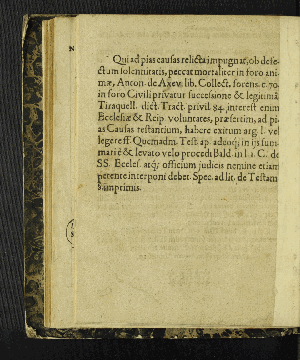 N
Qui ad pias causas relicta impugnat, ob defe-
ctum solennitatis, peccat mortaliter in foro ani-
mæ, Ancon. de Axev. lib. Collect. forens. c. 70.
in foro Civili privatur successione & legitimâ
Tiraquell. dict. Tract. privil. 84. interest enim
Ecclesiæ & Reip. voluntates, præsertim, ad pi-
as Causas testantium, habere exitum arg. l. vel
legere ff Quemadm. Test. ap. adeoq; in ijs sum-
mariè & levato velo procedi Bald. in l. 1. C. de
SS. Eccles. atq; officium judicis nemine etiam
petente interponi debet. Spec. ad lit. de Testam
8. imprimis.